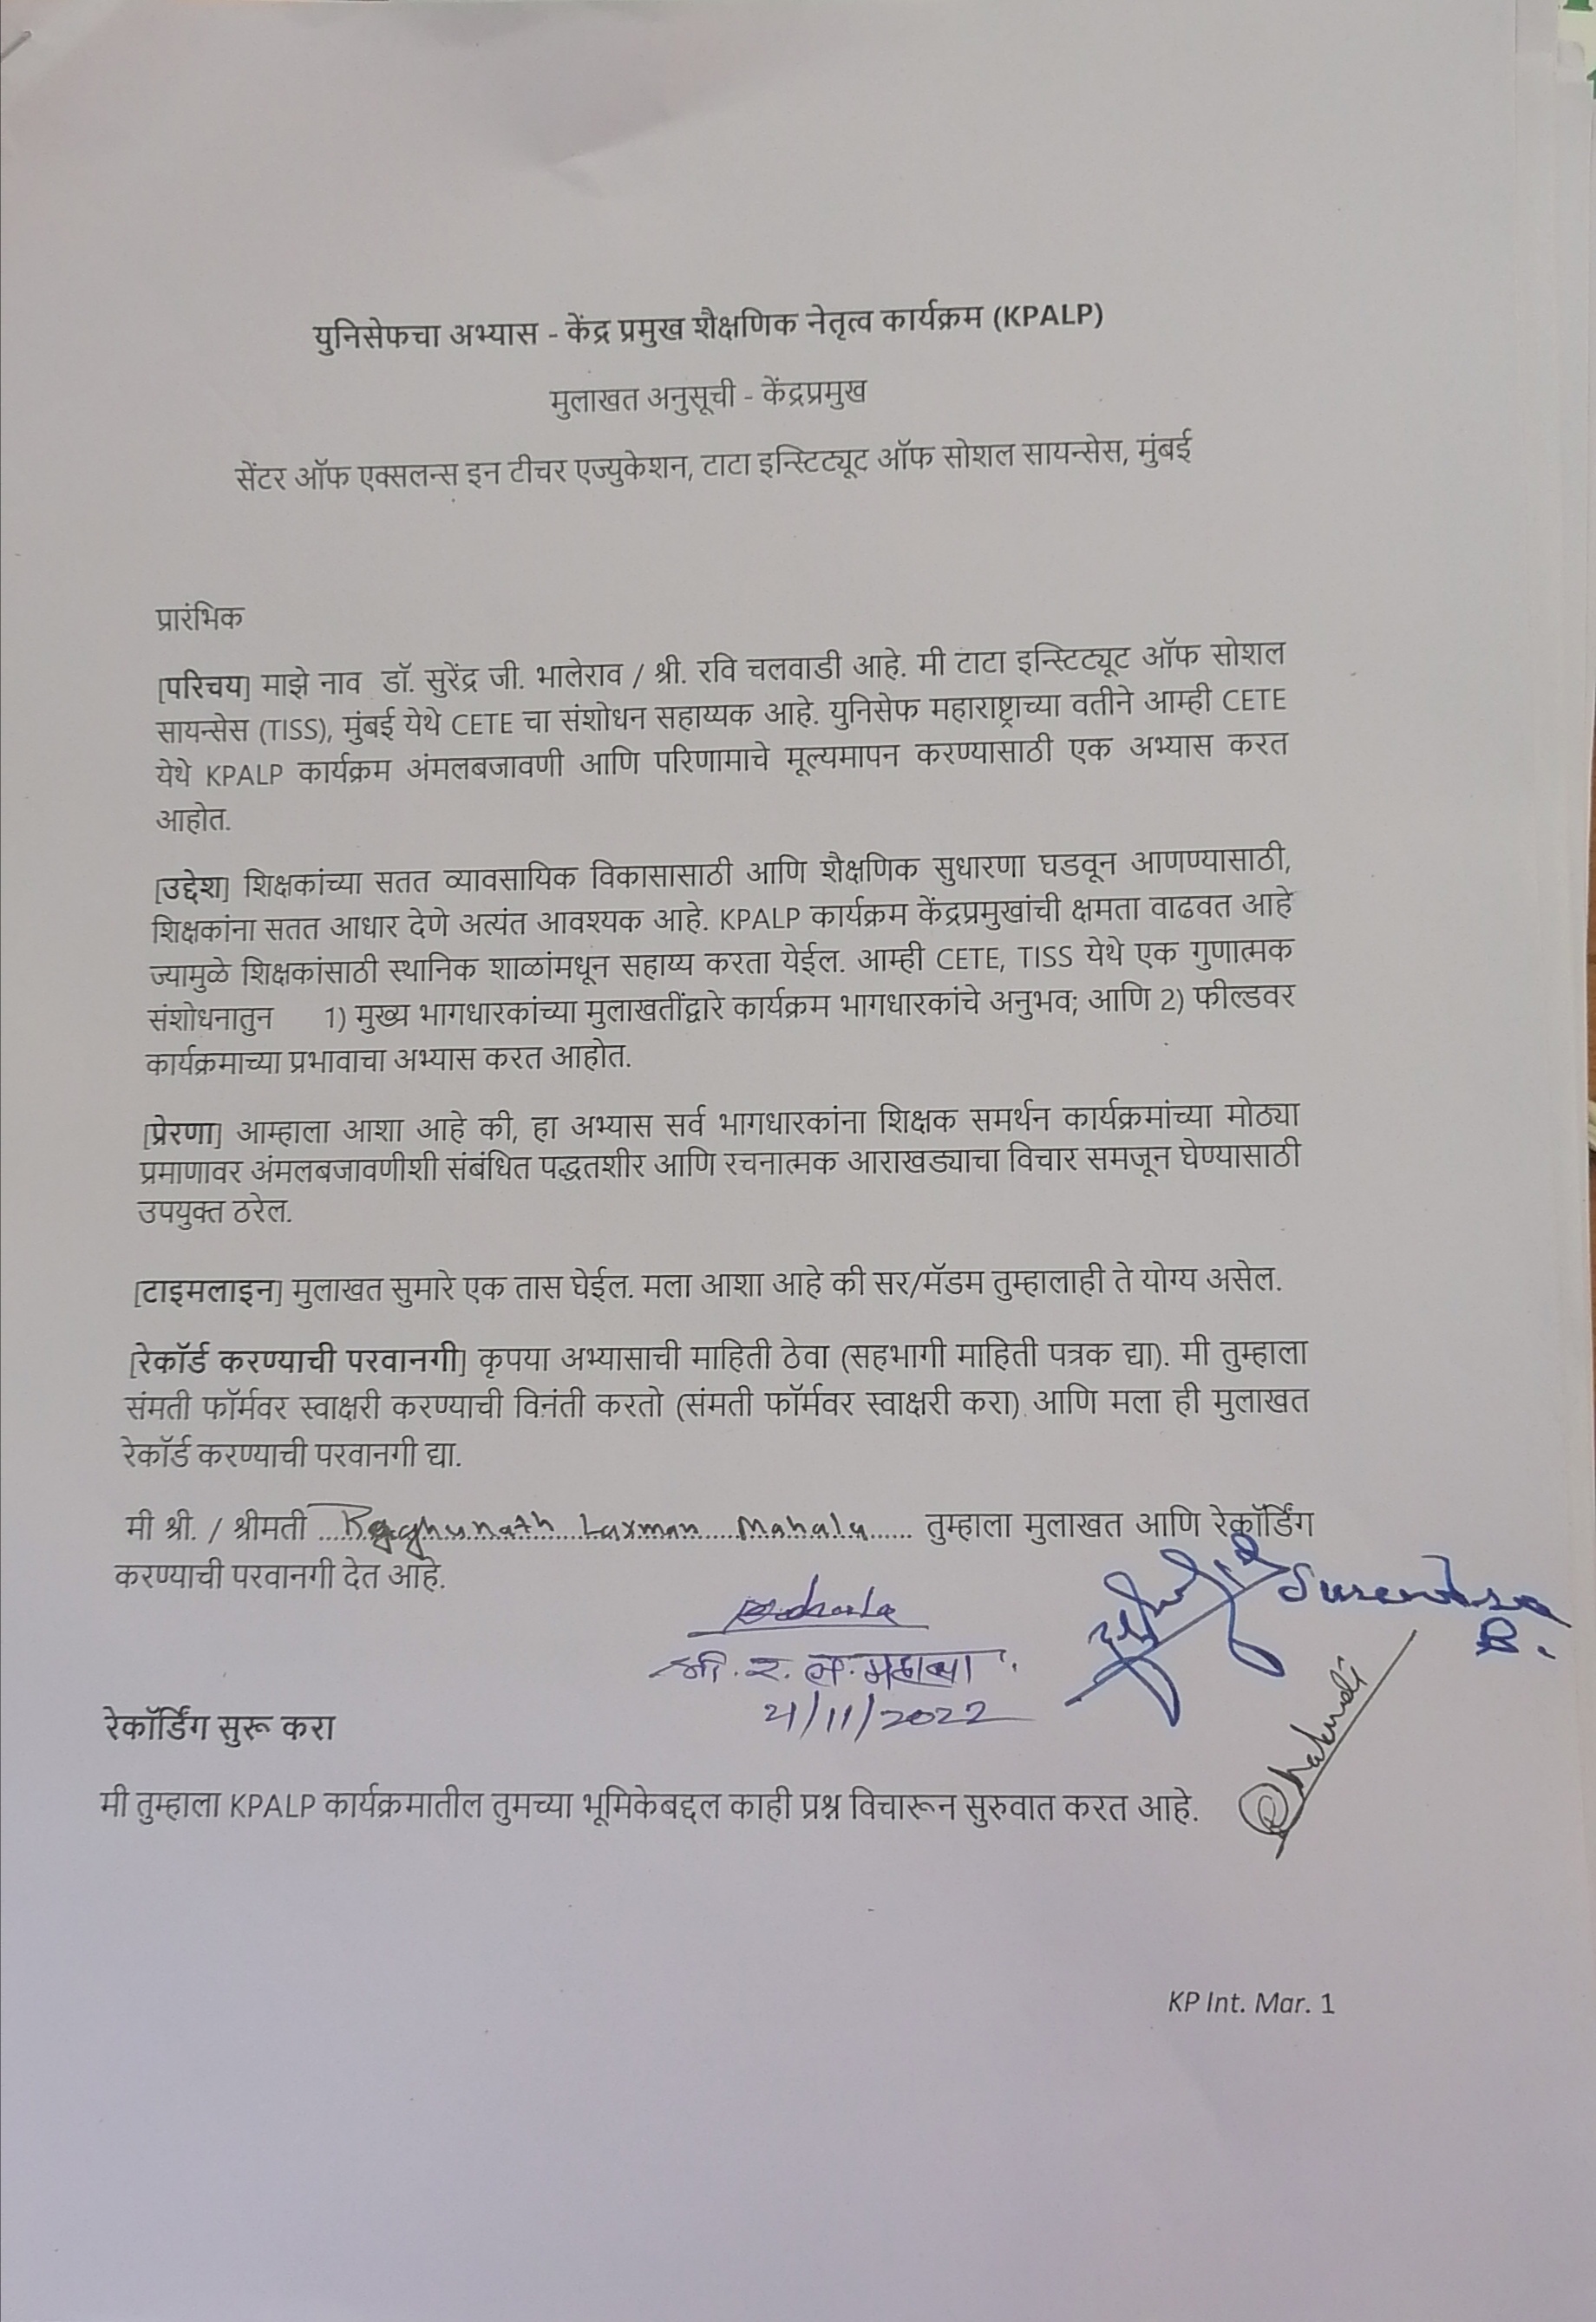 युनिसेफचा अभ्यास - केंद्र प्रमुख शैक्षणिक नेतृत्व कार्यक्रम (KPALP)
मुलाखत अनुसूची - केंद्रप्रमुख
सेंटर ऑफ एक्सलन्स इन टीचर एज्युकेशन, टाटा इन्स्टिट्यूट ऑफ सोशल सायन्सेस, मुंबई
प्रारंभिक
[परिचय] माझे नाव डॉ. सुरेंद्र जी. भालेराव / श्री. रवि चलवाडी आहे. मी टाटा इन्स्टिट्यूट ऑफ सोशल
सायन्सेस (TISS), मुंबई येथे CETE चा संशोधन सहाय्यक आहे. युनिसेफ महाराष्ट्राच्या वतीने आम्ही CETE
येथे KPALP कार्यक्रम अंमलबजावणी आणि परिणामाचे मूल्यमापन करण्यासाठी एक अभ्यास करत
आहोत.
[उद्देश] शिक्षकांच्या सतत व्यावसायिक विकासासाठी आणि शैक्षणिक सुधारणा घडवून आणण्यासाठी,
शिक्षकांना सतत आधार देणे अत्यंत आवश्यक आहे. KPALP कार्यक्रम केंद्रप्रमुखांची क्षमता वाढवत आहे
ज्यामुळे शिक्षकांसाठी स्थानिक शाळांमधून सहाय्य करता येईल. आम्ही CETE, TISS येथे एक गुणात्मक
संशोधनातुन 1) मुख्य भागधारकांच्या मुलाखतींद्वारे कार्यक्रम भागधारकांचे अनुभव; आणि 2) फील्डवर
कार्यक्रमाच्या प्रभावाचा अभ्यास करत आहोत.
[प्रेरणा] आम्हाला आशा आहे की, हा अभ्यास सर्व भागधारकांना शिक्षक समर्थन कार्यक्रमांच्या मोठ्या
प्रमाणावर अंमलबजावणीशी संबंधित पद्धतशीर आणि रचनात्मक आराखड्याचा विचार समजून घेण्यासाठी
उपयुक्त ठरेल.
[टाइमलाइन] मुलाखत सुमारे एक तास घेईल. मला आशा आहे की सर/मॅडम तुम्हालाही ते योग्य असेल.
[रेकॉर्ड करण्याची परवानगी] कृपया अभ्यासाची माहिती ठेवा (सहभागी माहिती पत्रक द्या). मी तुम्हाला
संमती फॉर्मवर स्वाक्षरी करण्याची विनंती करतो (संमती फॉर्मवर स्वाक्षरी करा) आणि मला ही मुलाखत
रेकॉर्ड करण्याची परवानगी द्या.
मी श्री. / श्रीमती ...Raghunath Laxman Mahala...... तुम्हाला मुलाखत आणि रेकॉर्डिंग
करण्याची परवानगी देत आहे.
Surendra
B.
श्री. र. ल. महाला
21/11/2022
रेकॉर्डिंग सुरू करा
मी तुम्हाला KPALP कार्यक्रमातील तुमच्या भूमिकेबद्दल काही प्रश्न विचारून सुरुवात करत आहे.
KP Int. Mar. 1